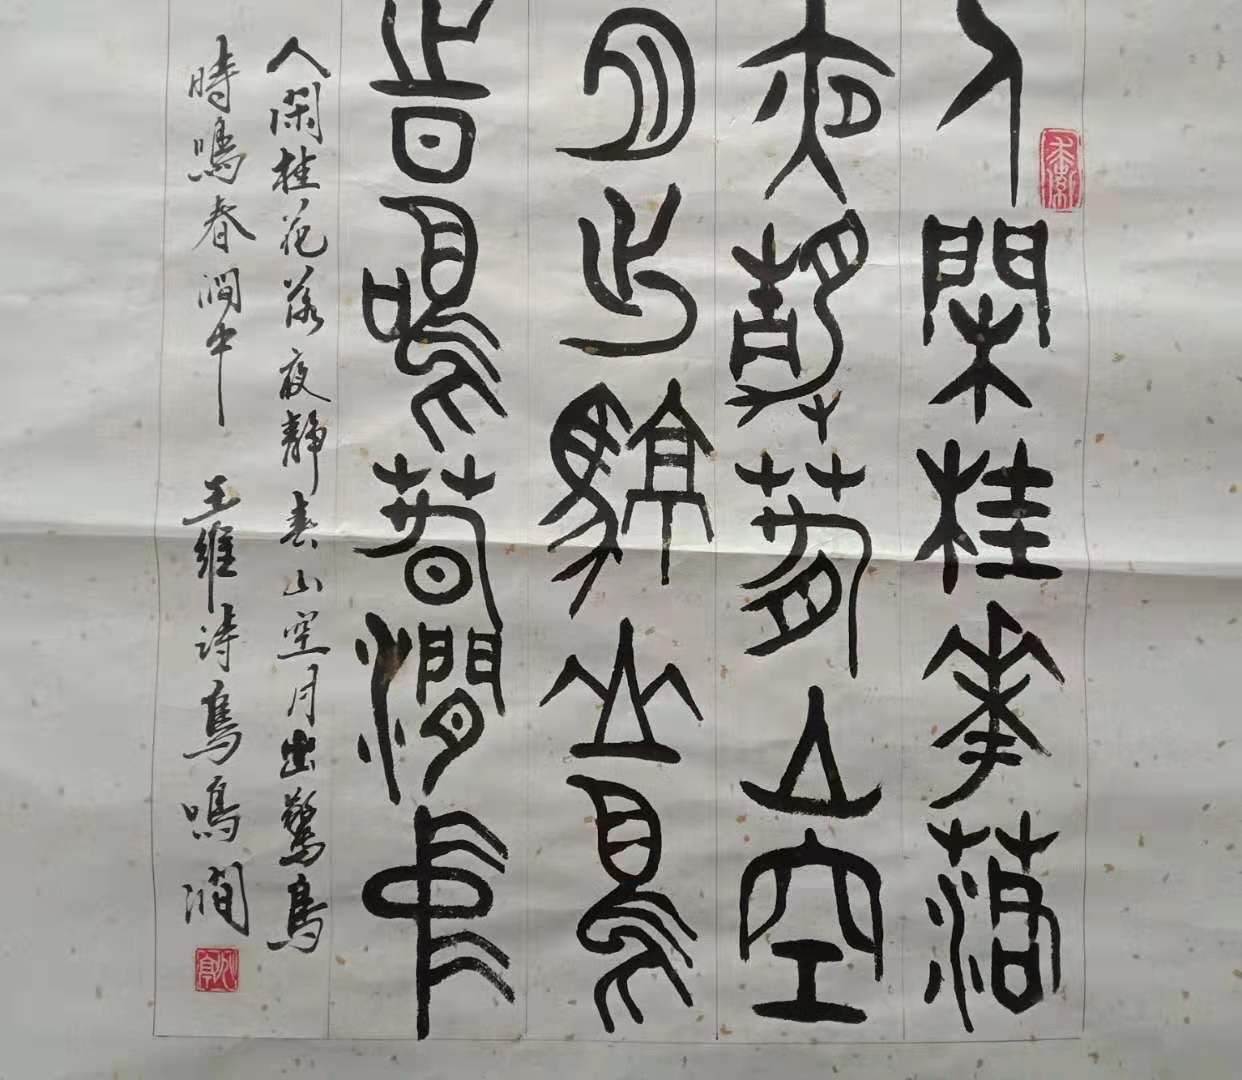 人閑桂花落
夜靜春山空
月出驚山鳥
時鳴春澗中
人閑桂花落夜靜春山空月出驚鳥
時鳴春澗中 王維詩鳥鳴澗